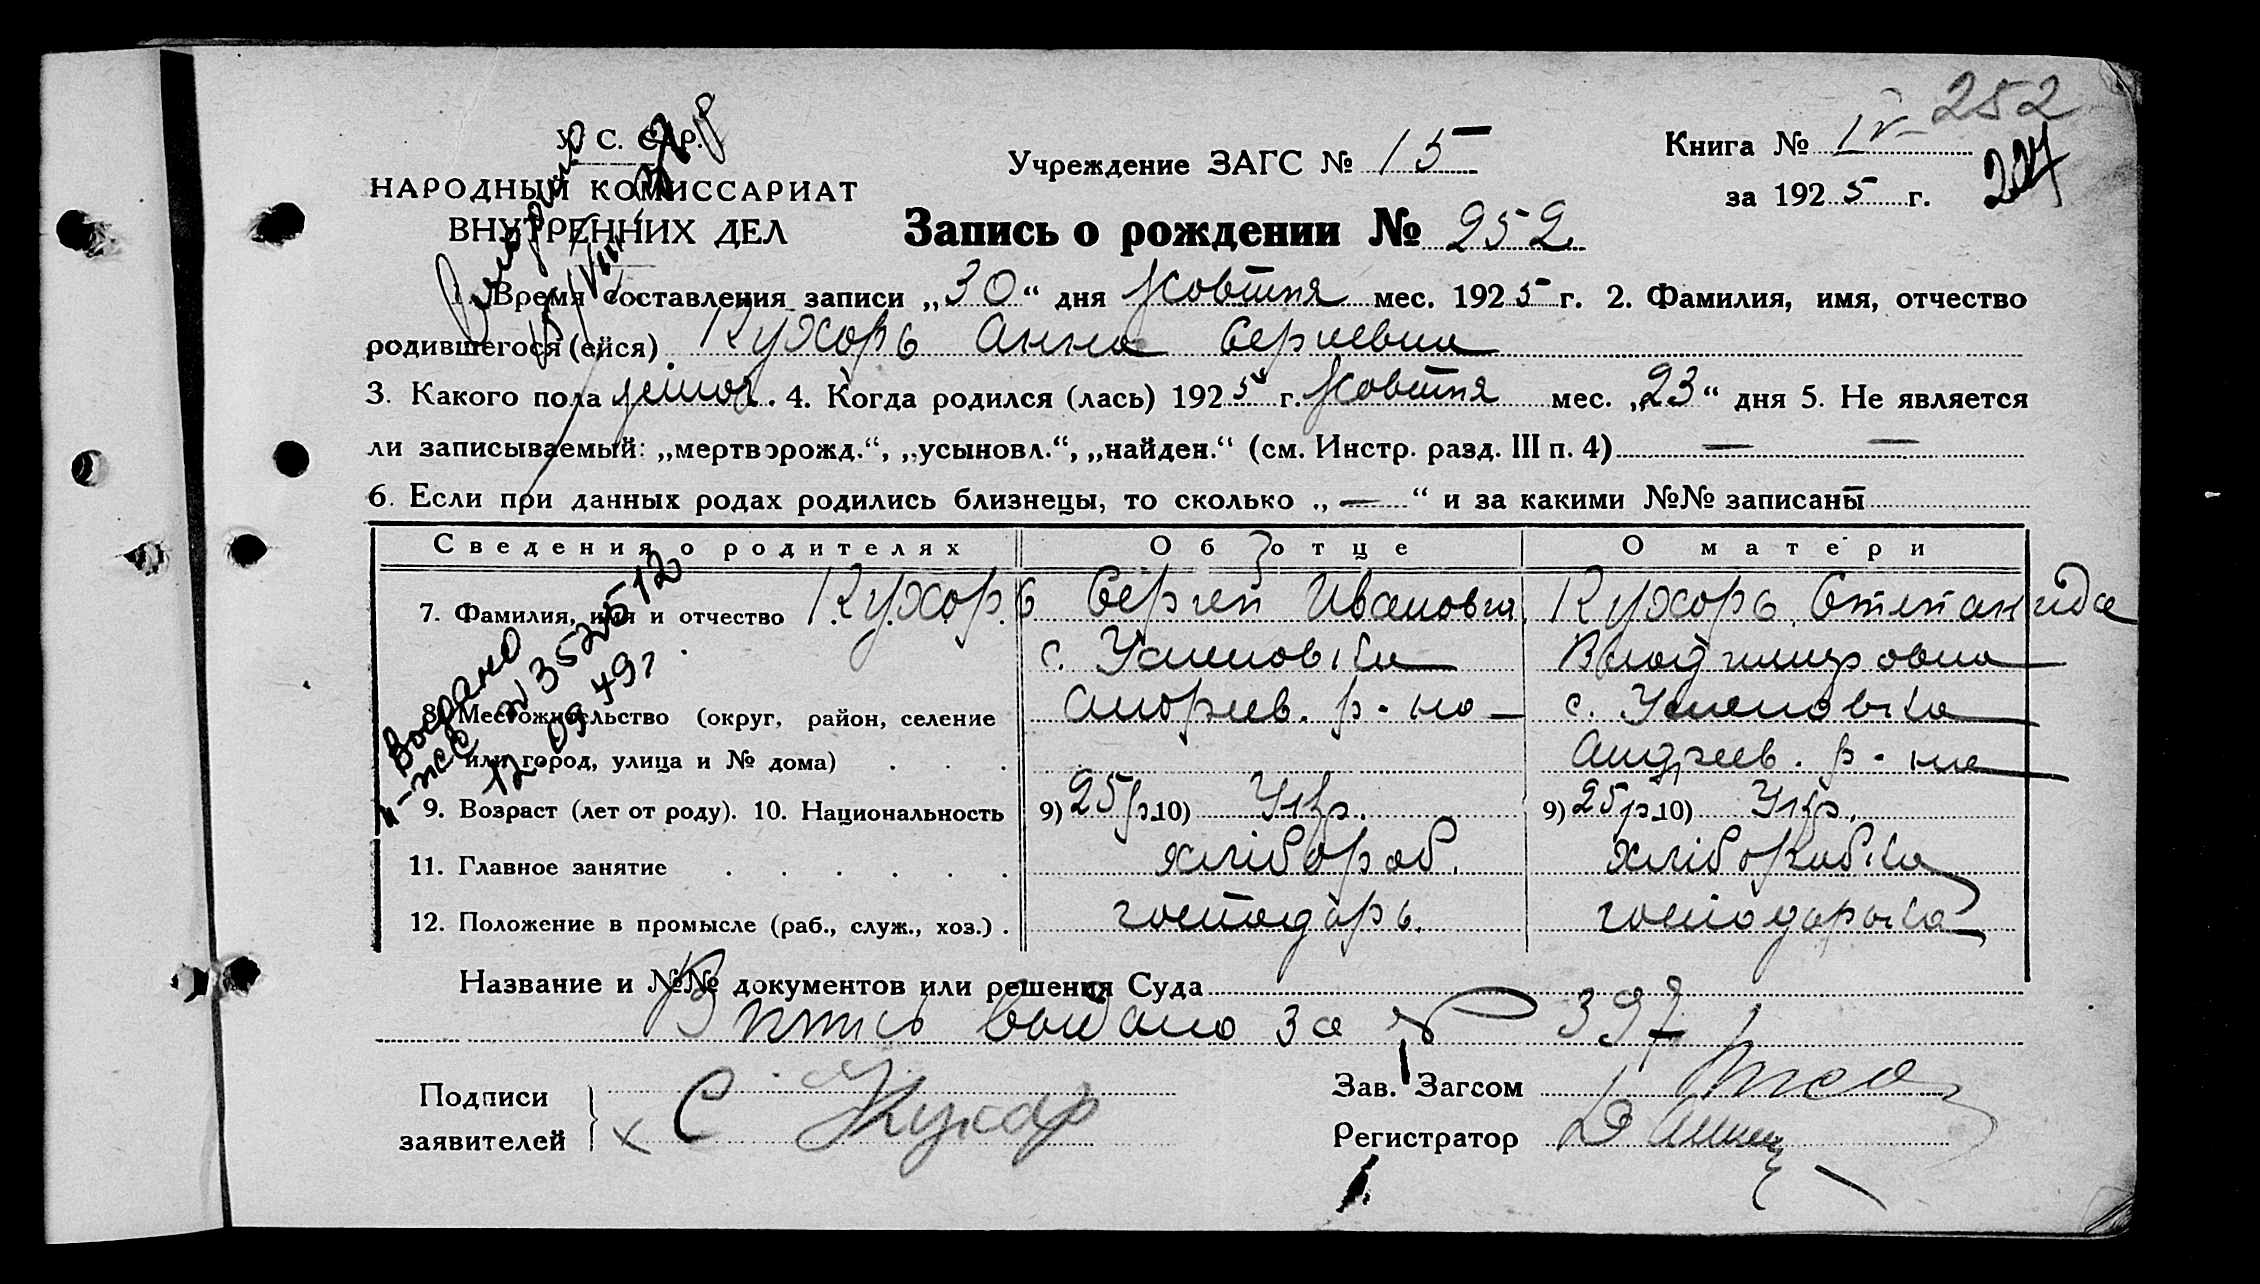 252
У. С. С. Р.
НАРОДНЫЙ КОМИССАРИАТ
ВНУТРЕННИХ ДЕЛ
Учреждение ЗАГС № 15
Книга № IV
за 1925 г.
207
Запись о рождении № 252
1. Время составления записи „30“ дня Жовтня мес. 1925 г. 2. Фамилия, имя, отчество
родившегося (ейся) Кухорь Анна Сергиевна
3. Какого пола жіноч. 4. Когда родился (лась) 1925 г. Жовтня мес. „23“ дня 5. Не является
ли записываемый: „мертворожд.“, „усыновл.“, „найден.“ (см. Инстр. разд. III п. 4) — —
6. Если при данных родах родились близнецы, то сколько „—“ и за какими №№ записаны —
Сведения о родителях Об отце О матери
7. Фамилия, имя и отчество Кухорь Сергей Иванович Кухорь Степанида
с. Успеновка Владимировна
8. Местожительство (округ, район, селение Андреев. р-на с. Успеновка
или город, улица и № дома) Андреев. р-на
9. Возраст (лет от роду). 10. Национальность 9) 25 р. 10) Укр. 9) 25 р. 10) Укр.
11. Главное занятие хлібороб. хліборобка
12. Положение в промысле (раб., служ., хоз.) господарь. господарька
Выдано
№ 352512
12 09 49 г.
Название и №№ документов или решения Суда
Выпись выдано за № 397
Подписи
заявителей
х С Кухар
Зав. Загсом
Регистратор